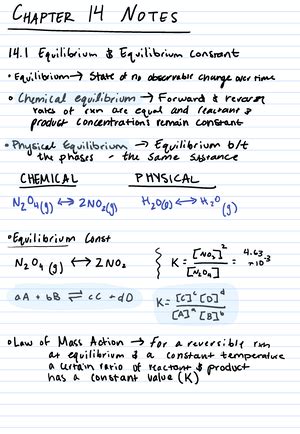 CHAPTER 14 NOTES
14.1 Equilibrium & Equilibrium Constant
• Equilibrium → State of no observable change over time
• Chemical equilibrium → Forward & reverse
rates of rxn are equal and reactant &
product concentrations remain constant
• Physical Equilibrium → Equilibrium b/t
the phases - the same substance
CHEMICAL PHYSICAL
N₂O₄(g) ↔ 2NO₂(g) H₂O(l) ↔ H₂O(g)
• Equilibrium Const
N₂O₄(g) ↔ 2NO₂ K = [NO₂]² / [N₂O₄] = 4.63 ×10⁻³
aA + bB ⇌ cC + dD K = [C]ᶜ [D]ᵈ / [A]ᵃ [B]ᵇ
• Law of Mass Action → for a reversible rxn
at equilibrium & a constant temperature
a certain ratio of reactant & product
has a constant value (K)